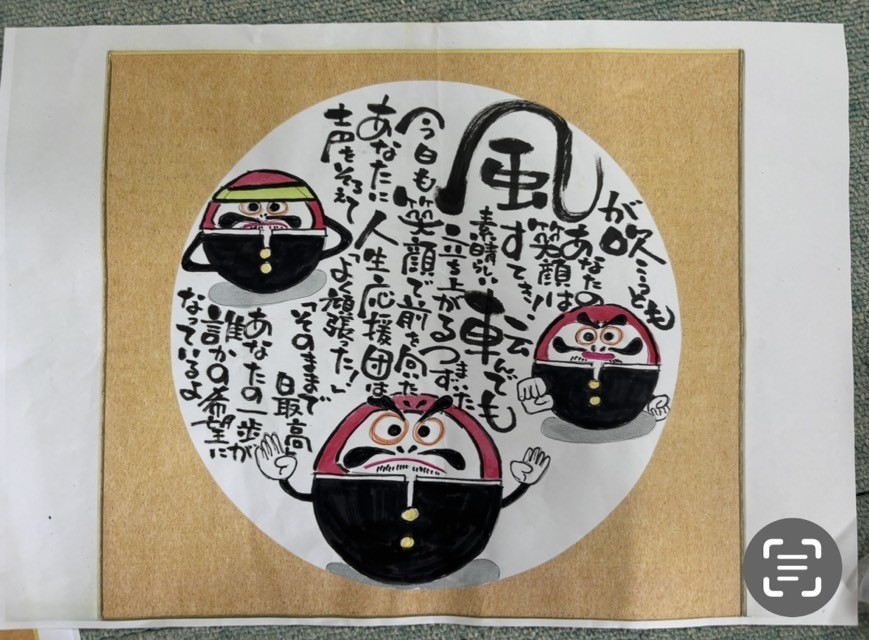 風が吹こうとも
あなたの
笑顔は
すてき!
転んでも
素晴らしい
立ち上がる
今日も笑顔で前を向た
あなたに人生応援団は
声をそろえて「よく頑張った!」
「そのままで
最高
あなたの一歩が
誰かの希望に
なっているよ